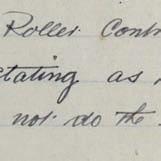 Roller Contr
tating as
not do the